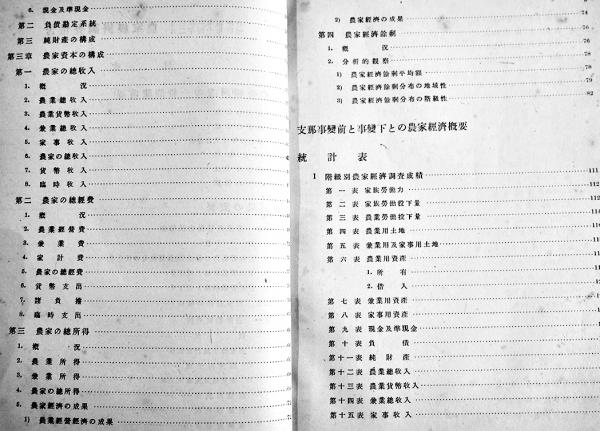 6. 現金及準現金
第二 負債勘定系統
第三 純財産の構成
第三章 農家資本の構成
第一 農家の總收入
1. 概況
2. 農業總收入
3. 農業貨幣收入
4. 兼業總收入
5. 家事收入
6. 農家の總收入
7. 貨幣收入
8. 臨時收入
第二 農家の總經費
1. 概況
2. 農業經營費
3. 兼業費
4. 家計費
5. 農家の總經費
6. 貨幣支出
7. 諸負擔
8. 臨時支出
第三 農家の總所得
1. 概況
2. 農業所得
3. 兼業所得
4. 農家の總所得
5. 農家經濟の成果
1) 農業經營經濟の成果
74
2) 農家經濟の成果 76
第四 農家經濟餘剩 78
1. 概況 78
2. 分析的觀察 78
1) 農家經濟餘剩平均額 79
2) 農家經濟餘剩分布の地域性
3) 農家經濟餘剩分布の階級性 82
支那事變前と事變下との農家經濟概要
統計表
I 階級別農家經濟調査成績 111
第一表 家族勞働力 112
第二表 家族勞働投下量 112
第三表 農業勞働投下量
第四表 農業用土地
第五表 兼業用及家事用土地
第六表 農業用資産
1. 所有
2. 借入
第七表 兼業用資産
第八表 家事用資産
第九表 現金及準現金
第十表 負債
第十一表 純財産
第十二表 農業總收入
第十三表 農業貨幣收入
第十四表 兼業總收入
第十五表 家事收入